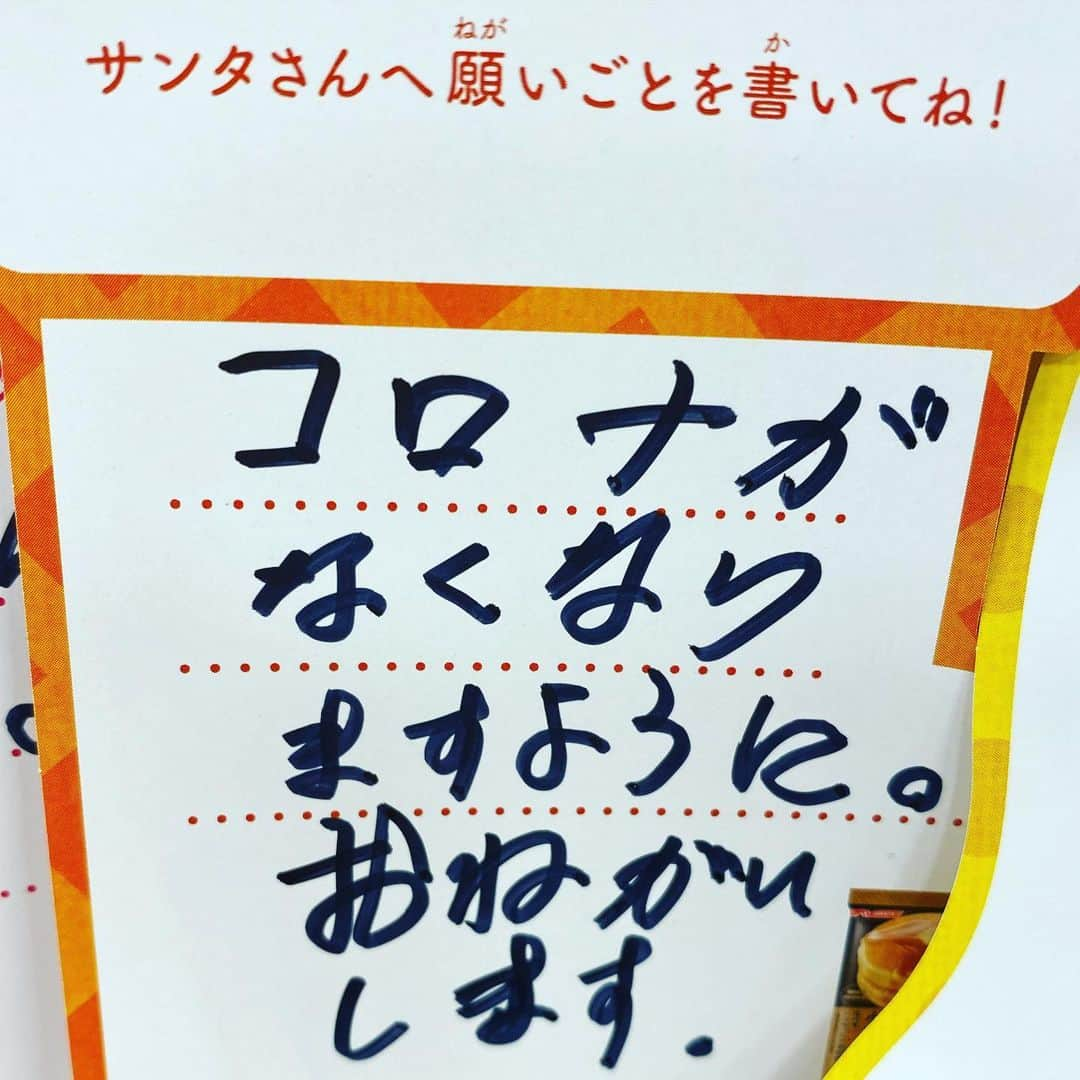 サンタさんへ願いごとを書いてね!
コロナが
なくなり
ますように。
おねがい
します.